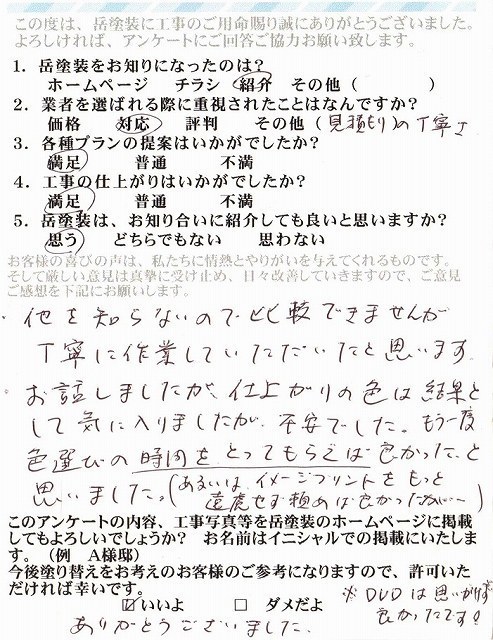 この度は、岳塗装に工事のご用命賜り誠にありがとうございました。
よろしければ、アンケートにご回答ご協力お願い致します。
1. 岳塗装をお知りになったのは？
ホームページ　チラシ　紹介　その他（　　　　）
2. 業者を選ばれる際に重視されたことはなんですか？
価格　対応　評判　その他（見積もりの丁寧さ
3. 各種プランの提案はいかがでしたか？
満足　普通　不満
4. 工事の仕上がりはいかがでしたか？
満足　普通　不満
5. 岳塗装は、お知り合いに紹介しても良いと思いますか？
思う　どちらでもない　思わない
お客様の喜びの声は、私たちに情熱とやりがいを与えてくれるものです。
そして厳しい意見は真摯に受け止め、日々改善していきますので、ご意見
ご感想を下記にお願いします。
他を知らないので比較できませんが
丁寧に作業していただいたと思います
お話しましたが、仕上がりの色は結果と
して気に入りましたが、不安でした。もう一度
色選びの時間をとってもらえば良かったと
思いました。(あるいは、イメージプリントをもっと
遠慮せず頼めば良かったかなー)
このアンケートの内容、工事写真等を岳塗装のホームページに掲載
してもよろしいでしょうか？　お名前はイニシャルでの掲載にいたしま
す。（例　A様邸）
今後塗り替えをお考えのお客様のご参考になりますので、許可いた
だければ幸いです。
☑いいよ　□ ダメだよ
※ DVDは思いがけず
良かったです!
ありがとうございました.